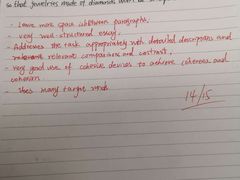 so that jewelries made of diamonds
- Leave more space between paragraphs.
- very well-structured essay.
- Addresses the task appropriately with detailed descriptions and
relevant relevant comparisons and contrast.
- very good use of cohesive devices to achieve coherence and
cohesion
- Uses many target words
14/15